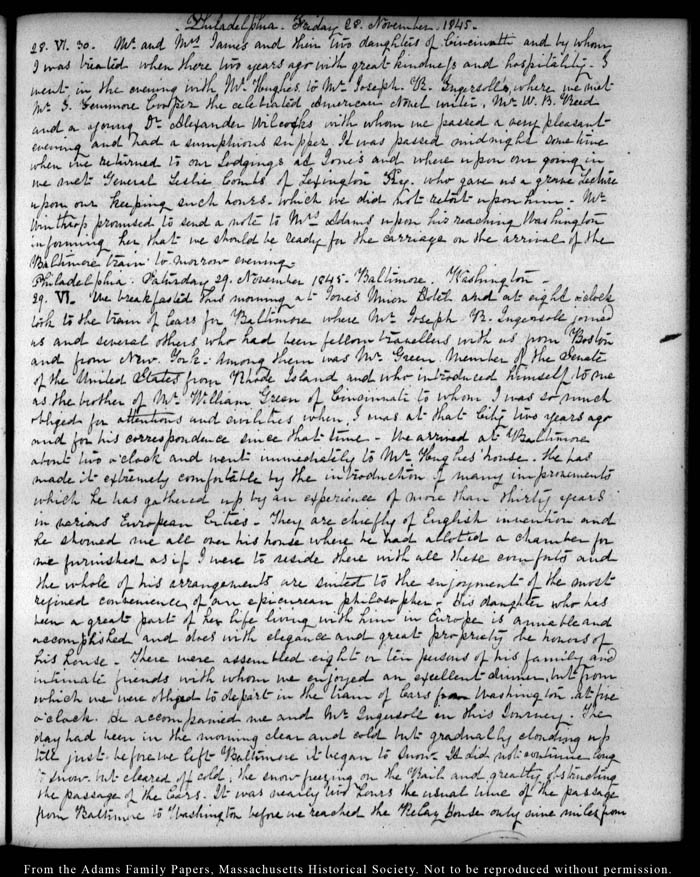 Philadelphia. Friday 28. November. 1845.
28. VI. 30. Mr. and Mrs James and their two daughters of Cincinnati and by whom
I was treated when there two years ago with great kindness and hospitality. I
went in the evening with Mr. Hughes to Mr. Joseph. R. Ingersoll's, where we met
Mr. J. Fennimore Cooper the celebrated American Novel writer. Mr. W. B. Reed
and a young Dr. Alexander Wilcocks with whom we passed a very pleasant
evening and had a sumptuous supper. It was passed midnight some time
when we returned to our Lodgings at Jones's and where upon our going in
we met General Leslie Combs of Lexington Ky. who gave us a grave Lecture
upon our keeping such hours. which we did not retort upon him. Mr.
Winthrop promised to send a note to Mrs Adams upon his reaching Washington
informing her that we should be ready for the carriage on the arrival of the
Baltimore train to morrow evening.
Philadelphia. Saturday 29. November 1845. Baltimore. Washington.
29. VI. We breakfasted this morning at Jones's Union Hotel and at eight o'clock
took to the train of Cars for Baltimore where Mr. Joseph R. Ingersoll joined
us and several others who had been fellow travellers with us from Boston
and from New. York. Among them was Mr. Green. Member of the Senate
of the United States from Rhode Island and who introduced himself to me
as the brother of Mr. William Green of Cincinnati to whom I was so much
obliged for attentions and civilities when I was at that City two years ago
and for his correspondence since that time. We arrived at Baltimore
about two o'clock and went immediately to Mr. Hughes' house. He has
made it extremely comfortable by the introduction of many improvements
which he has gathered up by an experience of more than thirty years
in various European Cities. They are chiefly of English invention and
he showed me all over his house where he had allotted a chamber for
me furnished as if I were to reside there with all these comforts and
the whole of his arrangements are suited to the enjoyment of the most
refined convenience of an epicurean philosopher. His daughter who has
been a great part of her life living with him in Europe is amiable and
accomplished and does with elegance and great propriety the honors of
his house. There were assembled eight or ten persons of his family and
intimate friends with whom we enjoyed an excellent dinner, but from
which we were obliged to depart in the train of Cars for Washington at five
o'clock. He accompanied me and Mr. Ingersoll on this Journey. The
day had been in the morning clear and cold but gradually clouding up
till just before we left Baltimore it began to snow. It did not continue long
to snow. but cleared off cold; the snow freezing on the Rail and greatly obstructing
the passage of the Cars. It was nearly two hours the usual time of the passage
from Baltimore to Washington before we reached the Relay House only nine miles from
From the Adams Family Papers, Massachusetts Historical Society. Not to be reproduced without permission.